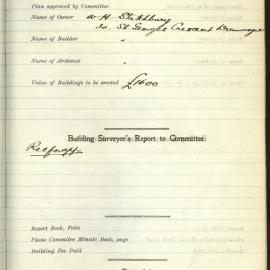 Plan approved by Committee
Name of Owner W. H. St
20. St. Georges Crescent Drummoyne
Name of Builder "
Name of Architect "
Value of Buildings to be erected £1600
Building Surveyor's Report to Committee.
Report Book, Folio
Plans Commitee Minute Book, page
Building Fee Paid